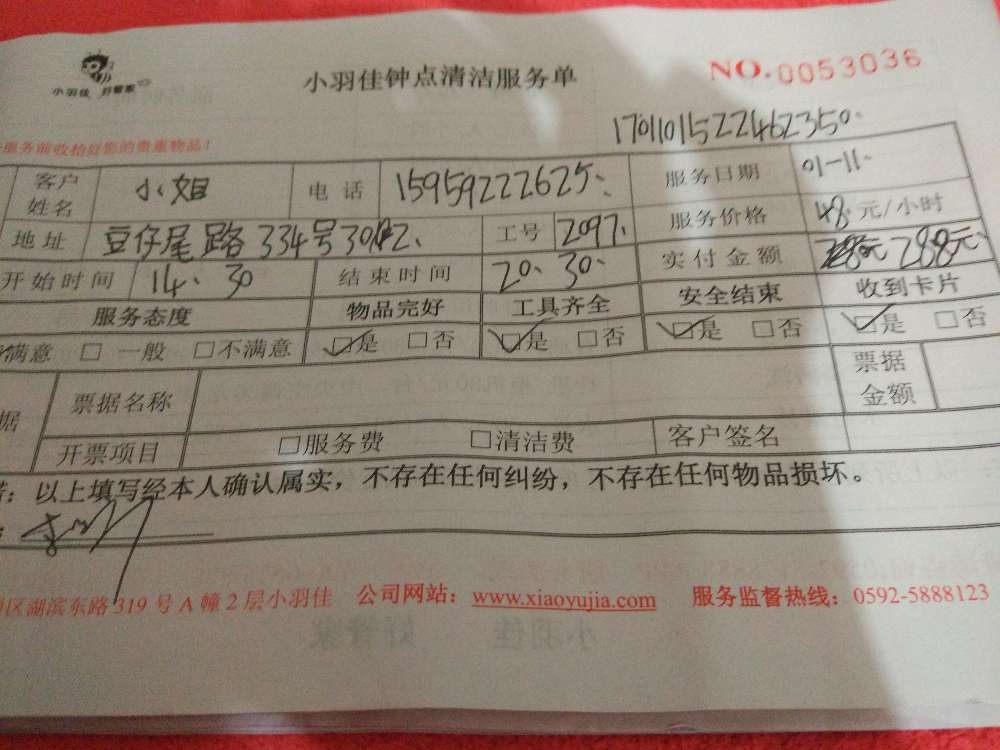 小羽佳 好管家
小羽佳钟点清洁服务单
NO.0053036
1701101522462350
服务前收拾好您的贵重物品!
客户姓名 小姐 电话 15959222625 服务日期 01-11
地址 豆仔尾路334号 工号 2097 服务价格 48元/小时
开始时间 14.30 结束时间 20.30 实付金额 288元
服务态度 物品完好 工具齐全 安全结束 收到卡片
满意 □ 一般 □不满意 ☑是 □否 ☑是 □否 ☑是 □否 ☑是 □否
据 票据名称 票据金额
开票项目 □服务费 □清洁费 客户签名
:以上填写经本人确认属实,不存在任何纠纷,不存在任何物品损坏。
区湖滨东路319号A幢2层小羽佳 公司网站:www.xiaoyujia.com 服务监督热线:0592-5888123